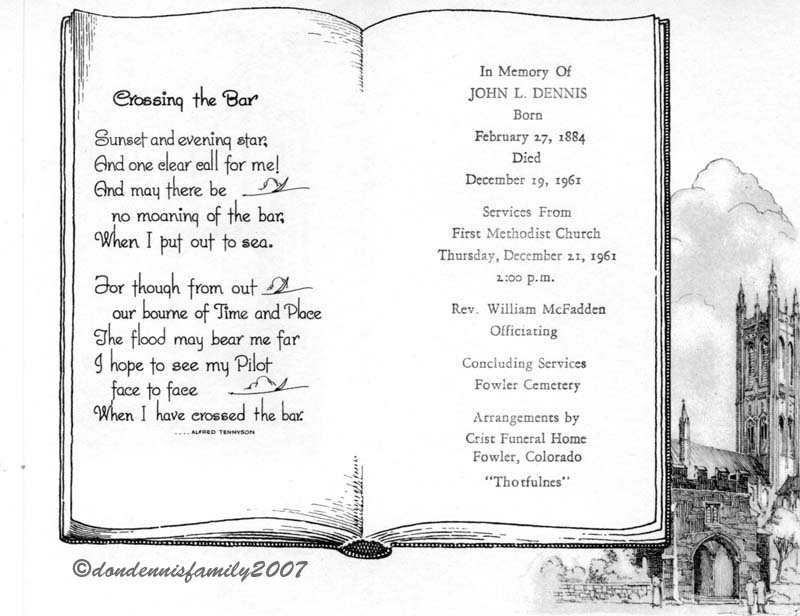 Crossing the Bar
Sunset and evening star,
And one clear call for me!
And may there be
no moaning of the bar,
When I put out to sea.
For though from out
our bourne of Time and Place
The flood may bear me far
I hope to see my Pilot
face to face
When I have crossed the bar.
....ALFRED TENNYSON
In Memory Of
JOHN L. DENNIS
Born
February 27, 1884
Died
December 19, 1961
Services From
First Methodist Church
Thursday, December 21, 1961
2:00 p.m.
Rev. William McFadden
Officiating
Concluding Services
Fowler Cemetery
Arrangements by
Crist Funeral Home
Fowler, Colorado
"Thotfulnes"
©dondennisfamily2007